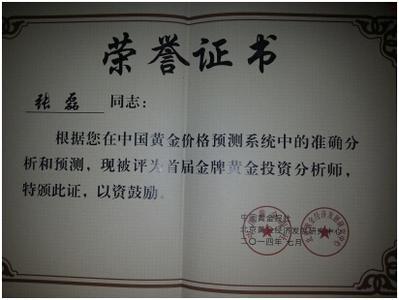 荣誉证书
张磊 同志：
根据您在中国黄金价格预测系统中的准确分
析和预测，现被评为首届金牌黄金投资分析师，
特颁此证，以资鼓励。
中国黄金报社
北京黄金经济发展研究中心
二〇一四年七月